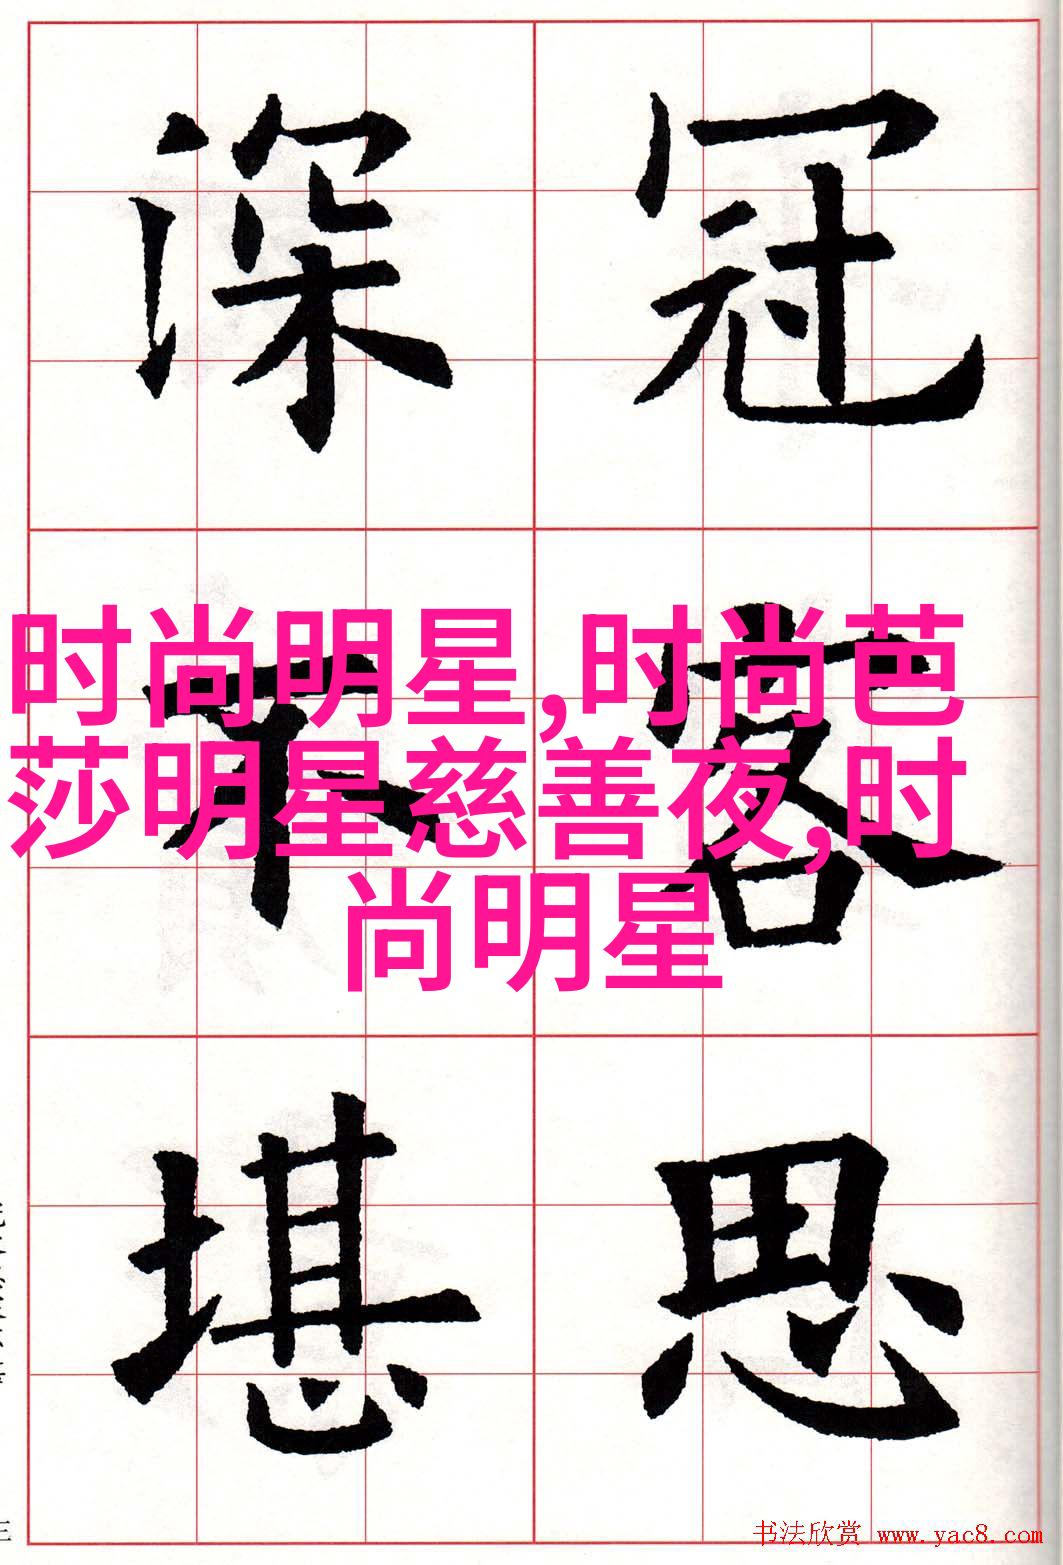 冠客思
深不堪
时尚明星,时尚芭
莎明星慈善夜,时
尚明星
书法欣赏 www.yac8.com